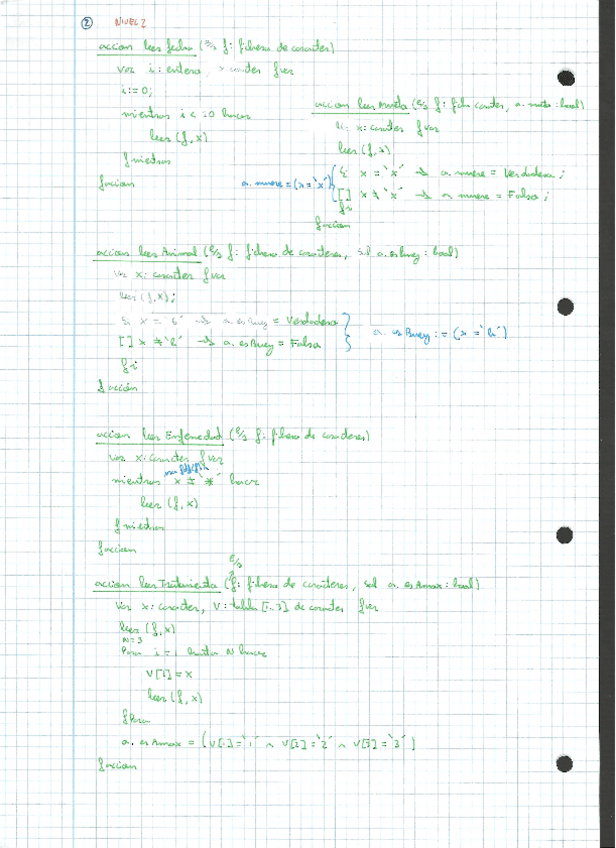 ② NIVEL 2
accion leer fecha (E/S f: fichero de caracter)
var i: entero, x caracter fvar
i:=0;
mientras i < 10 hacer
leer (f, x)
fmientras
faccion
accion leer Muerte (E/S f: fich caracter, a. : bool)
var x: caracter fvar
leer (f, x)
Si x = 'x' → a. muere = Verdadera;
[] x ≠ 'x' → a muere = Falsa;
fsi
a. muere = (x = 'x')
faccion
accion leer Animal (E/S f: fichero de caracteres, sal a. es Buey: bool)
var x: caracter fvar
leer (f, x);
Si x = 'b' → a. es Buey = Verdadera
[] x ≠ 'b' → a. es Buey = Falsa
a. es Buey := (x = 'b')
fsi
faccion
accion leer Enfermedad (E/S f: fichero de caracteres)
var x: caracter fvar
mientras x ≠ * hacer
leer (f, x)
fmientras
faccion
accion leer Tratamiento (E/S f: fichero de caracteres, sal a. es Amox: bool)
var x: caracter, V: tabla [1..3] de caracter fvar
leer (f, x)
N=3
Para i = 1 hasta N hacer
V[i] = x
leer (f, x)
fPara
a. es Amox = (V[1] = '1' ^ V[2] = '2' ^ V[3] = '3')
faccion